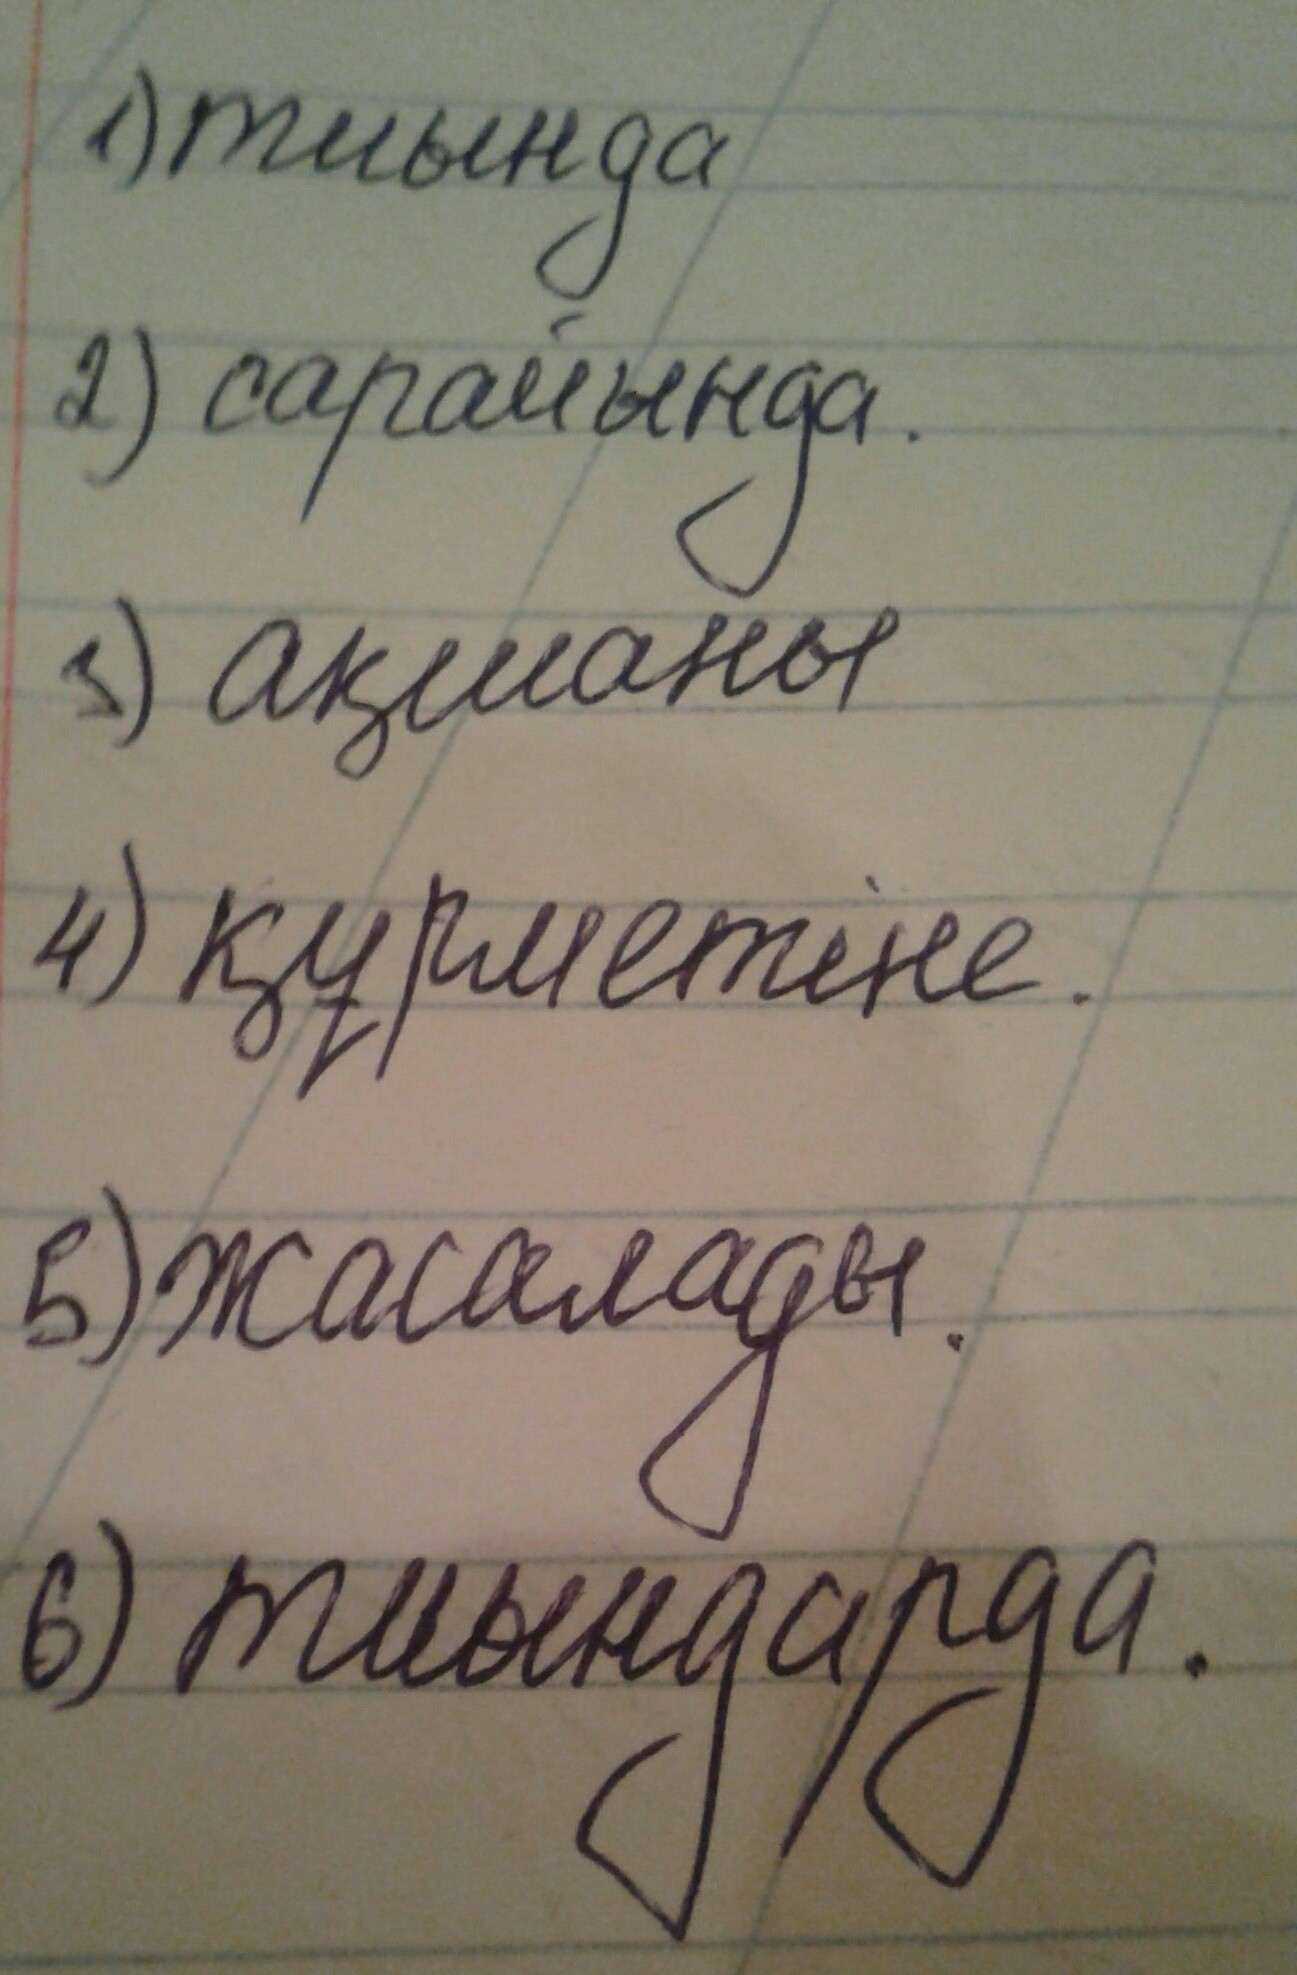 1) тиында
2) сарайында.
3) ақшаны
4) құрметіне.
5) жасалады.
6) тиындарда.